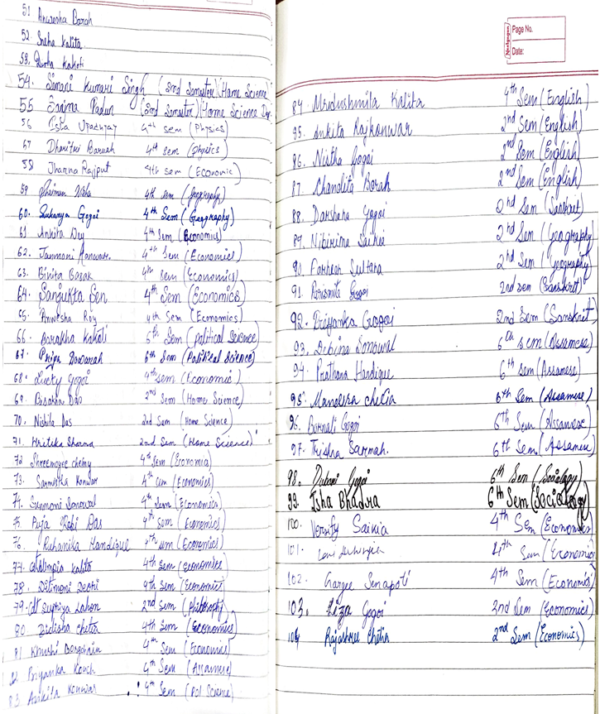 51. Anwesha Borah
52. Sneha Kalita
53. Kakoti
54. Kumari Singh (2nd Semester) (Home Science)
55. Padun (2nd Semester) (Home Science Dep
56 Upadhyay 4th sem (Physics)
57 Dharitri Baruah 4th sem (Physics)
58 Jharna Rajput 4th Sem (Economic)
59 4th Sem (Geography)
60. Sukanya Gogoi 4th Sem (Geography)
61 Ankita Dey 4th Sem (Economics)
62. 4th Sem (Economics)
63. Binita Basak 4th Sem (Economics)
64. Sanjukta Sen 4th Sem (Economics)
65. Anwesha Roy 4th Sem (Economics)
66. Barakha Kakati 6th Sem (political Science)
67. Priya 6th Sem (Political Science)
68. Lucky Gogoi 4th Sem (Economic)
69. Das 2nd Sem (Home Science)
70. Nikita Das 2nd Sem (Home Science)
71. Hritika Sharma 2nd Sem (Home Science)
72 Chetry 4th Sem (Economic)
73. Konwar 4th Sem (Economics)
74. Sonowal 4th Sem (Economics)
75 Puja Das 4th Sem (Economics)
76. Handique 4th sem (Economics)
77. Kalita 4th Sem (Economics)
78. 4th Sem (Economics)
79. Supriya Lahon 2nd Sem (philosophy)
80 Chetia 4th Sem (Economics)
81 Khushi Borgohain 4th Sem (Economics)
82 Priyanka Koch 4th Sem (Assamese)
83. Ankita Konwar 4th Sem (Pol Science)
Page No.
Date:
84. Mridusmita Kalita 4th Sem (English)
85. Ankita Rajkonwar 2nd Sem (English)
86. Nistha Gogoi 2nd Sem (English)
87. Chandita Borah 2nd Sem (English)
88. Darshana Gogoi 2nd Sem (Sanskrit)
89. 2nd Sem (Geography)
90. Sultana 2nd Sem (Geography)
91. Gogoi 2nd sem (Sanskrit)
92. Priyanka Gogoi 2nd Sem (Sanskrit)
93. Sonowal 6th sem (Assamese)
94. Prathana Handique 6th Sem (Assamese)
95. Chetia 6th Sem (Assamese)
96. Barnali Gogoi 6th Sem (Assamese)
97. Trisha Sarmah. 6th Sem (Assamese)
98. Gogoi 6th Sem (Sociology)
99. Isha Bhadra 6th Sem (Sociology)
100. Saikia 4th Sem (Economics)
101. 4th Sem (Economics)
102. Gargee Senapoti 4th Sem (Economics)
103. Liza Gogoi 2nd Sem (Economics)
104 Rajashree Chetia 2nd Sem (Economics)